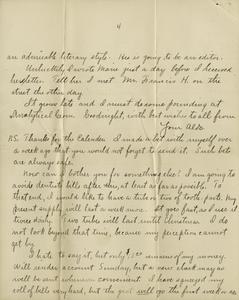 4
an admirable literary style. He is going to be an editor.
Unluckily I wrote Marie just a day before I received
her letter. Tell her I met Mr. Francis H. on the
street the other day.
It grows late and I must do some pounding at
Analytical Geom. Goodnight, with best wishes to all from
Your
P.S. Thanks for the Calendar. I made a bet with myself over
a week ago that you would not forget to send it. Such bets
are always safe.
Now can I bother you for something else? I am going to
avoid dentists bills after this, at least as far as possible. To
that end, I would like to have a tube or two of tooth paste. My
present supply will last a week more. It goes fast as I use it
twice daily. Two tubes will last until Christmas. I do
not look beyond that time, because my perception cannot
get by
I hate to say it, but only $1.00 remains of my money.
Will render account Sunday, but a new check may as
well be sent whenever convenient. I have squeezed my
roll of bills very hard, but the will go the first week or so